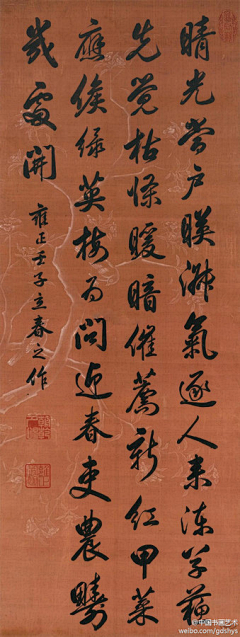 晴光當戶暎淑氣逐人来凍草蘓
先覺枯條暖暗催薦新紅甲菜
應候綠英梅為問迎春吏農疇
幾處開
雍正壬子立春之作
@中国书画艺术
weibo.com/gdshys